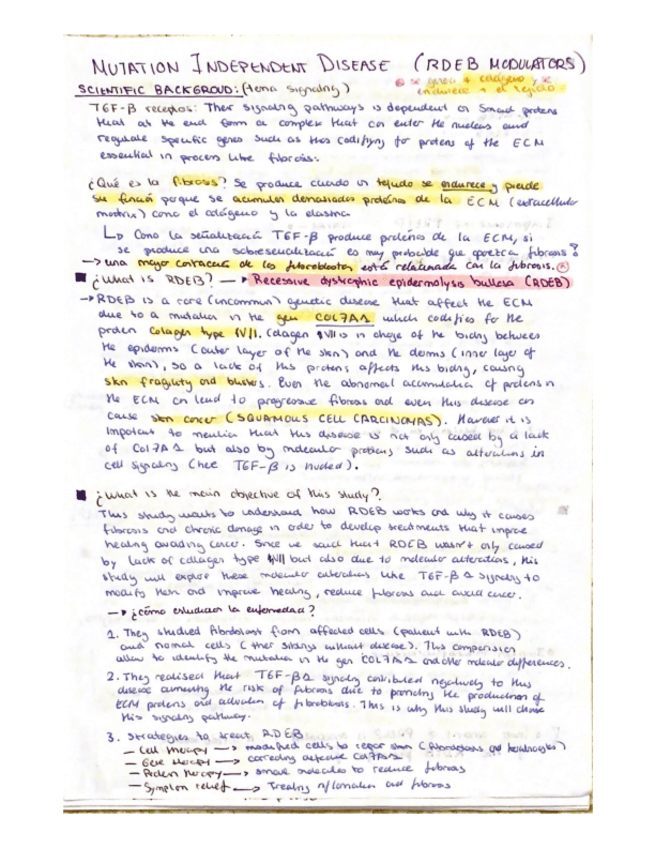 MUTATION INDEPENDENT DISEASE (RDEB MODULATORS)
SCIENTIFIC BACKGROUD: (tema signaling)
⊛ se genera + colágeno y se
endurece + el tejido
TGF-β receptos: Ther signaling pathways is dependent on Smad proteins
that at the end form a complex that can enter the nucleus and
regulate specific genes such as thos codifying for proteins of the ECM
essential in process like fibrosis.
¿Qué es la fibrosis? Se produce cuando un tejido se endurece y pierde
su función porque se acumulan demasiadas proteínas de la ECM (extracellular
matrix) como el colágeno y la elastina.
↳ Como la señalización TGF-β produce proteínas de la ECM, si
se produce una sobreseñalización es muy probable que aparezca fibrosis
→ una mayor contracción de los fibroblastos, está relacionada con la fibrosis.
■ ¿What is RDEB? → Recessive dystrophic epidermolysis bullosa (RDEB)
→ RDEB is a rare (uncommon) genetic disease that affect the ECM
due to a mutation in the gen COL7A1 which codifies for the
protein Colagen type VII. Colagen VII is in charge of the biding between
the epidermis (outer layer of the skin) and the dermis (inner layer of
the skin), so a lack of this proteins affects this biding, causing
skin fragility and blisters. Even the abnormal accumulation of proteins in
the ECM can lead to progressive fibrosis and even this disease can
cause skin cancer (SQUAMOUS CELL CARCINOMAS). However it is
important to mention that this disease is not only caused by a lack
of Col7A1 but also by molecular problems such as alterations in
cell signaling (here TGF-β is involved).
■ ¿What is the main objective of this study?
This study wants to understand how RDEB works and why it causes
fibrosis and chronic damage in order to develop treatments that improve
healing avoiding cancer. Since we said that RDEB wasn't only caused
by lack of collagen type VII but also due to molecular alterations, this
study will explore these molecular alterations like TGF-β1 signaling to
modify them and improve healing, reduce fibrosis and avoid cancer.
→ ¿cómo estudiaron la enfermedad?
1. They studied fibroblast from affected cells (patient with RDEB)
and normal cells (ther siblings without disease). This comparision
allow to identify the mutation in the gen COL7A1 and other molecular differences.
2. They realised that TGF-β1 signaling contributed negatively to this
disease aumenting the risk of fibrosis due to promoting the production of
ECM proteins and activation of fibroblasts. This is why this study will
this signaling pathway.
3. Strategies to treat RDEB
— Cell therapy → modified cells to repair skin (fibroblasts and keratinocytes)
— Gene therapy → correcting defective Col7A1
— Protein therapy → small molecules to reduce fibrosis
— Symptom relief → Treating inflamation and fibrosis